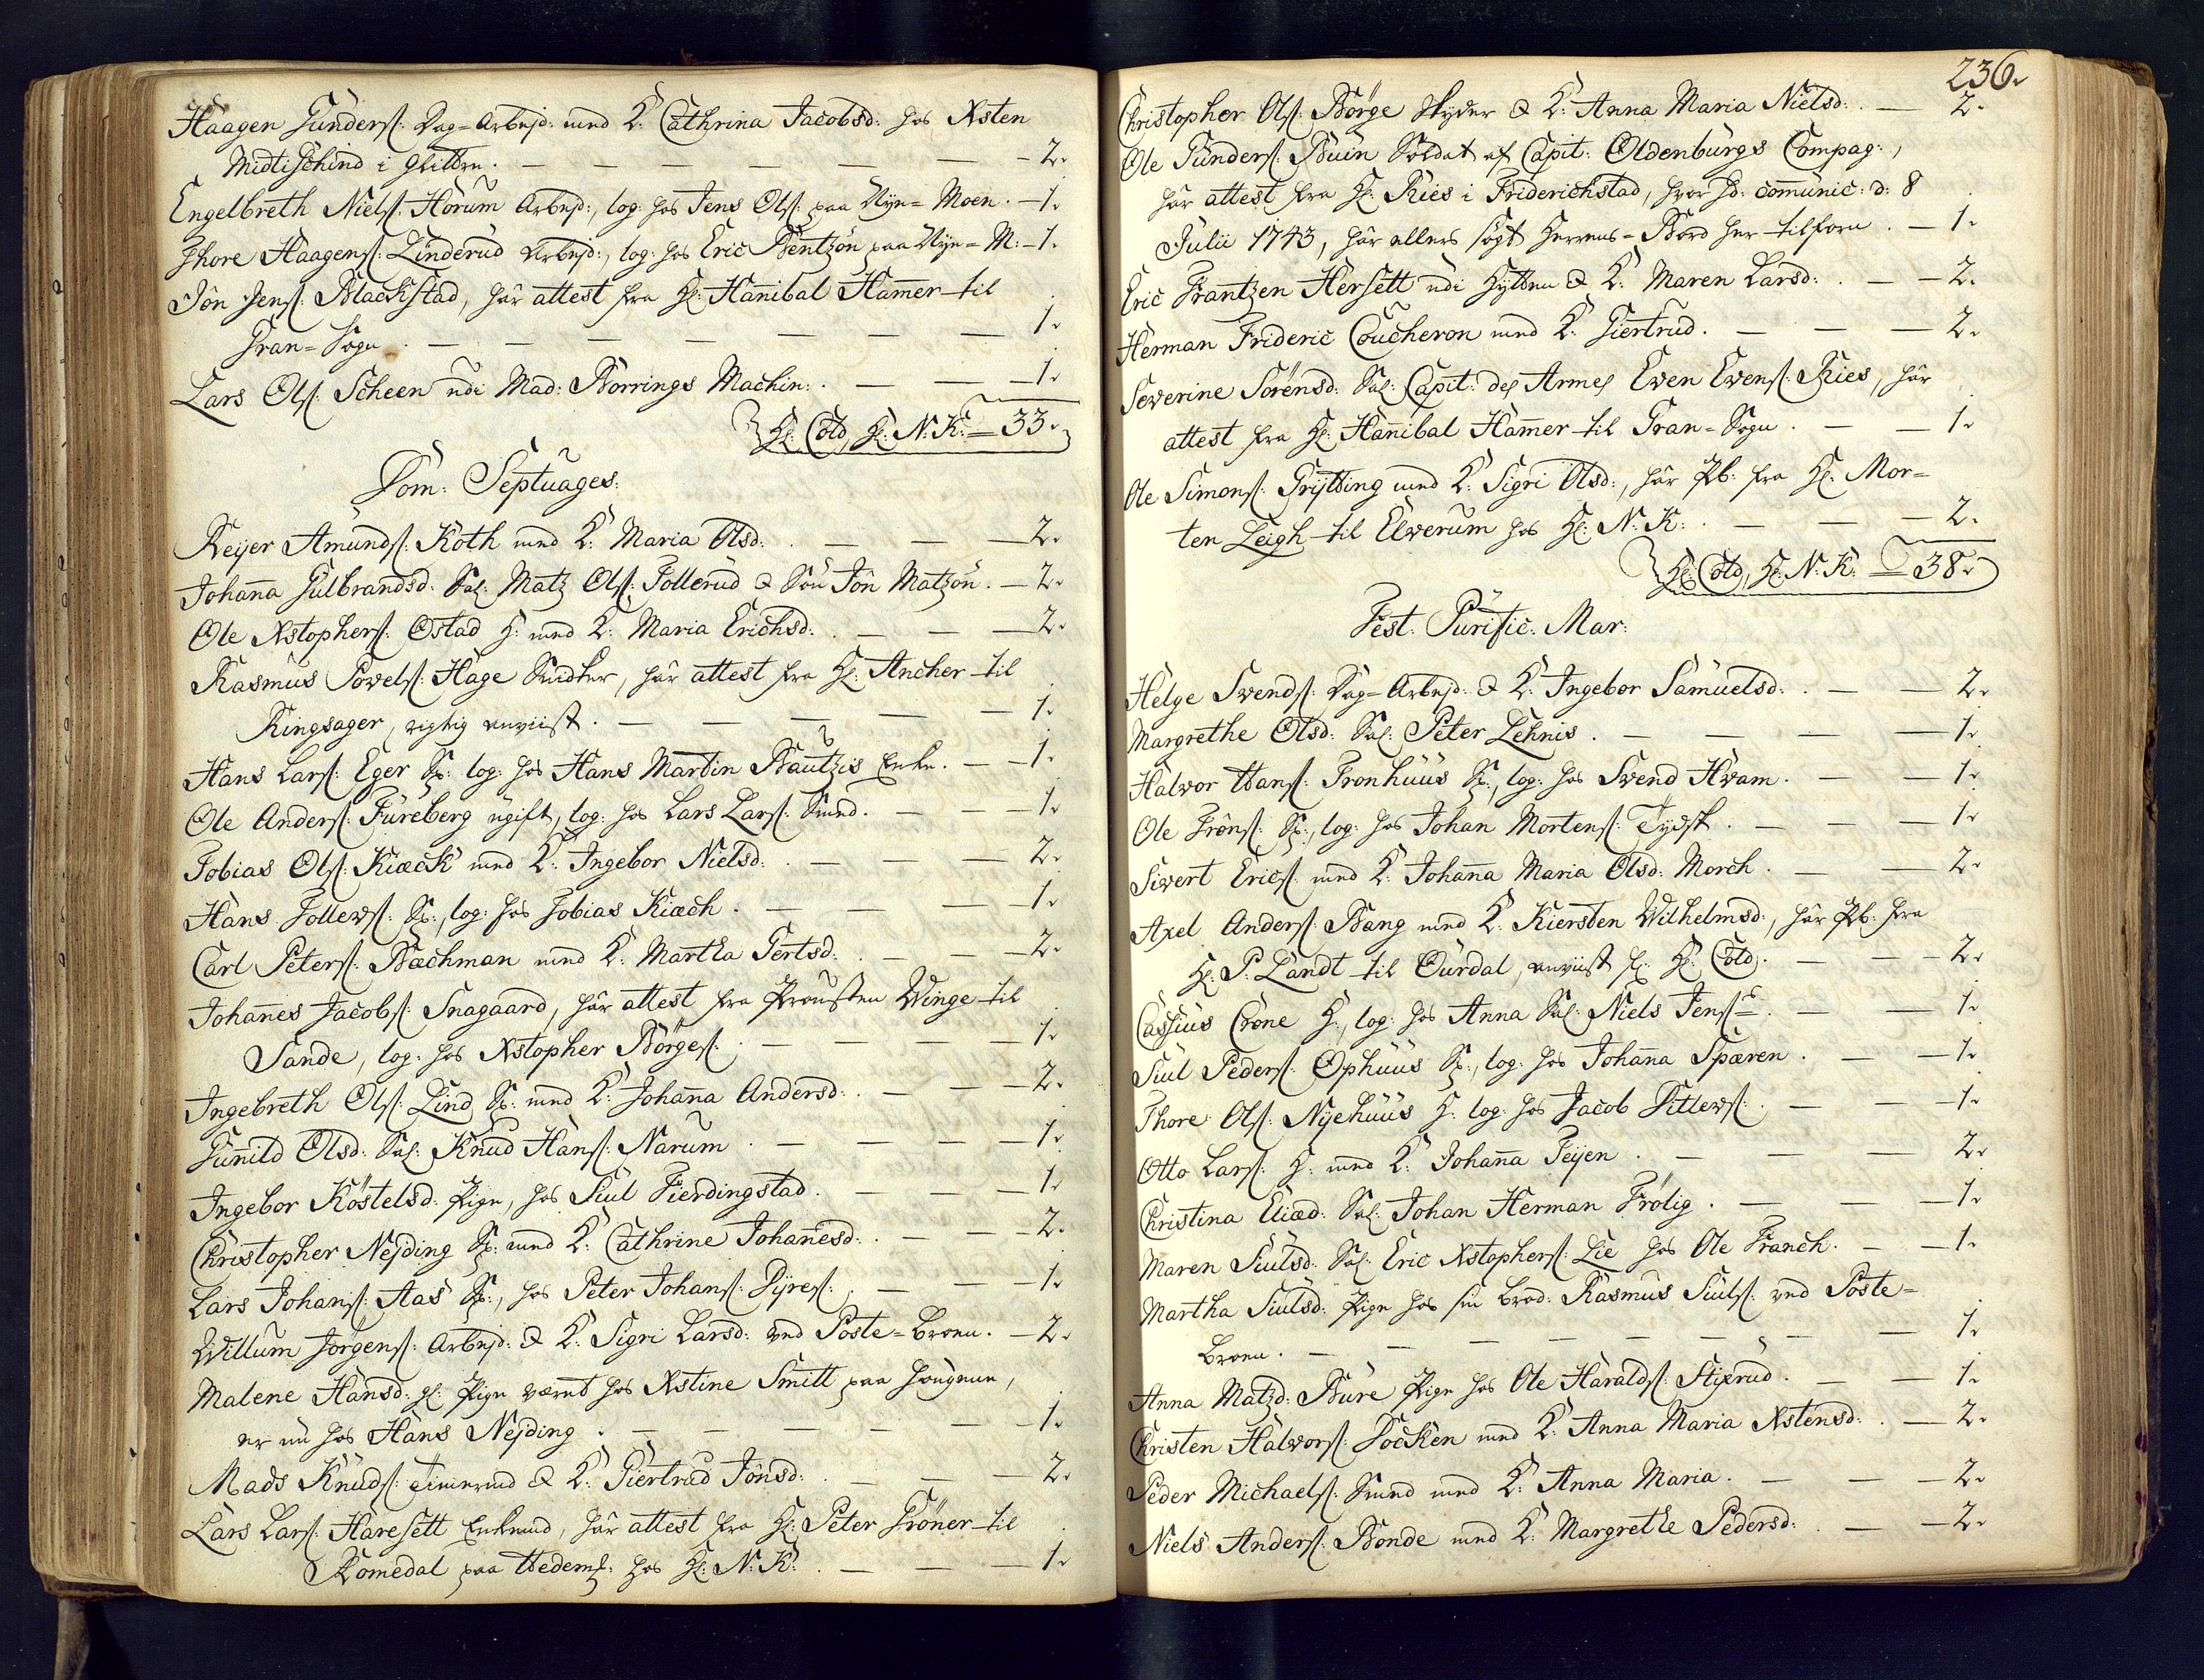 Haagen Gunders: Dag=Arbejd: med K: Cathrina Jacobsd: hos Xsten
Midtischind i Glitten. — 2.
Engelbreth Niels: Horum Arbejd:, log: hos Jens Ols: paa Nye=Moen. — 1.
Thore Haagens: Linderud Arbejd:, log: hos Eric Bentzøn paa Nye=M: — 1.
Jon Jens: Blackstad, har attest fra Hr: Hannibal Hammer til
Gran=Sogn. — 1.
Lars Ols: Scheen udi Mad: Borrings Machin: — 1.
Hr: Cold, Hr: N: K: = 33.
Dom: Septuages:
Reyer Amunds: Koth med K: Maria Olsd: — 2.
Johanna Gulbrandsd: Sal: Matz Ols: Tollerud & Søn Jon Matzøn. — 2.
Ole Xstophers: Ostad H: med K: Maria Erichsd: — 2.
Rasmus Powels: Hage Snidker, har attest fra Hr: Ancher til
Ringsager, rigtig anviist. — 1.
Hans Lars: Eger Sp: log: hos Hans Martin Bautzis Enke. — 1.
Ole Anders: Fureberg ugift, log: hos Lars Lars: Smed. — 1.
Tobias Ols: Kiæck med K: Ingebor Nielsd: — 2.
Hans Tollews: Sp:, log: hos Tobias Kiæch. — 1.
Carl Peters: Bæchman med K: Martha Gertsd: — 2.
Johannes Jacobs: Snagaard, har attest fra Prousten Winge til
Sande, log: hos Xstopher Børges: — 1.
Ingebreth Ols: Lind Sp: med K: Johanna Andersd: — 2.
Gunnild Olsd: Sal: Knud Hans: Narum — 1.
Ingebor Køstelsd: Pige, hos Siul Fierdingstad. — 1.
Christopher Nejding Sp: med K: Cathrine Johannesd: — 2.
Lars Johans: Aas Sp:, hos Peter Johans: Dyres: — 1.
Willum Jørgens: Arbejd: & K: Sigri Larsd: ved Poste=Broen. — 2.
Malene Hansd: gl: Pige været hos Xstine Smitt paa Haugene,
er nu hos Hans Nejding. — 1.
Mads Knuds: Timermd & K: Giertrud Jonsd: — 2.
Lars Lars: Haresett Enkemd, har attest fra Hr: Peter Grøner til
Romedal paa Hedem: hos Hr: N: K: — 1.
236.
Christopher Ols: Børge Skyder & K: Anna Maria Nielsd: — 2.
Ole Gunders: Buin Soldat af Capit: Oldenburgs Compag:,
har attest fra Hr: Ries i Friderichstad, hvor hd: communic: d: 8
Julii 1743, har ellers søgt Herrens=Bord her tilforn. — 1.
Eric Frantzen Hersett udi Hytten & K: Maren Larsd: — 2.
Herman Frideric Coucheron med K: Giertrud. — 2.
Severine Sørensd: Sal: Capit: des Armes Ewen Ewens: Ries, har
attest fra Hr: Hannibal Hammer til Gran=Sogn. — 1.
Ole Simons: Grytting med K: Sigri Olsd:, har Pb: fra Hr: Mor=
ten Leigh til Elverum hos Hr: N: K: — 2.
Hr: Cold, Hr: N: K: = 38.
Fest: Purific: Mar:
Helge Swends: Dag=Arbejd: & K: Ingebor Samuelsd: — 2.
Margrethe Olsd: Sal: Peter Lehnis. — 1.
Halvor Hans: Fronhuus Sp:, log: hos Swend Hvam. — 1.
Ole Frøns: Sp:, log: hos Johan Mortens: Tydsk. — 1.
Sivert Erics: med K: Johanna Maria Olsd: Morch. — 2.
Axel Anders: Bang med K: Kiersten Wilhelmsd:, har Pb: fra
Hr: P: Landt til Ourdal, anviist fr: Hr: Cold. — 2.
Cassius Crone H:, log: hos Anna Sal: Niels Jens: — 1.
Siul Peders: Ophuus Sp:, log: hos Johanna Spæren. — 1.
Thore Ols: Nyehuus H: log: hos Jacob Ditlews: — 1.
Otto Lars: H: med K: Johanna Feyen. — 2.
Christina Eliæd: Sal: Johan Herman Frølig. — 1.
Maren Siulsd: Sal: Eric Xstophers: Lie hos Ole Franch. — 1.
Martha Siulsd: Pige hos sin Brod: Rasmus Siuls: ved Poste=
Broen. — 1.
Anna Matzd: Bure Pige hos Ole Haralds: Stixrud. — 1.
Christen Halvors: Docken med K: Anna Maria Xstensd: — 2.
Peder Michaels: Smed med K: Anna Maria. — 2.
Niels Anders: Bonde med K: Margrethe Pedersd: — 2.